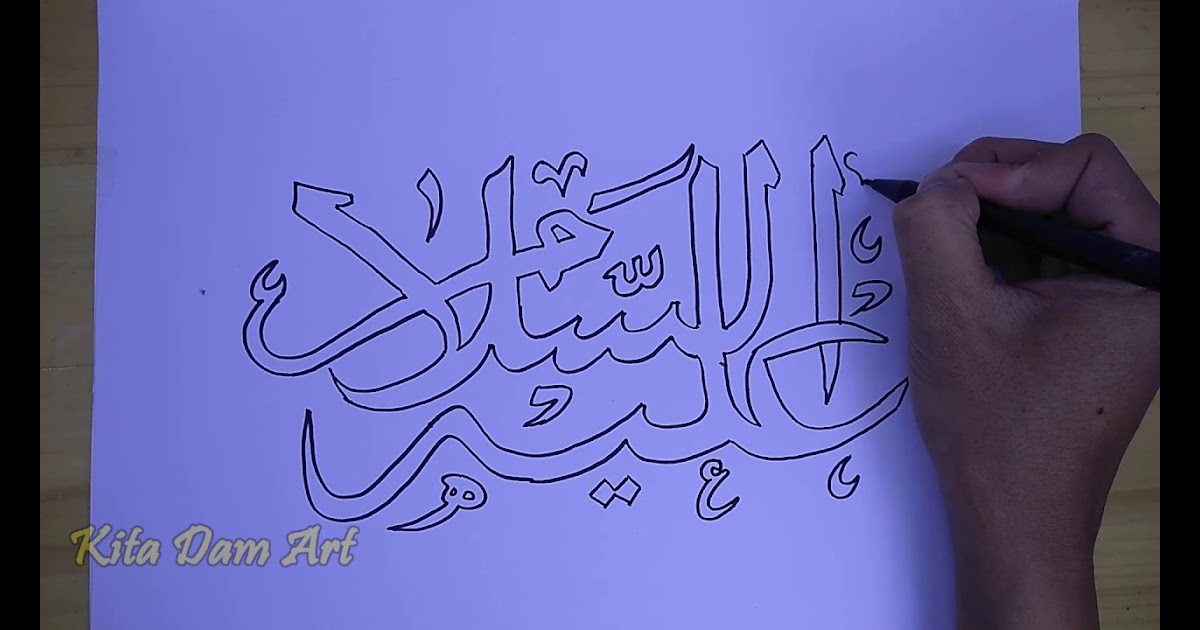 السلام
عليكم
Kita Dam Art